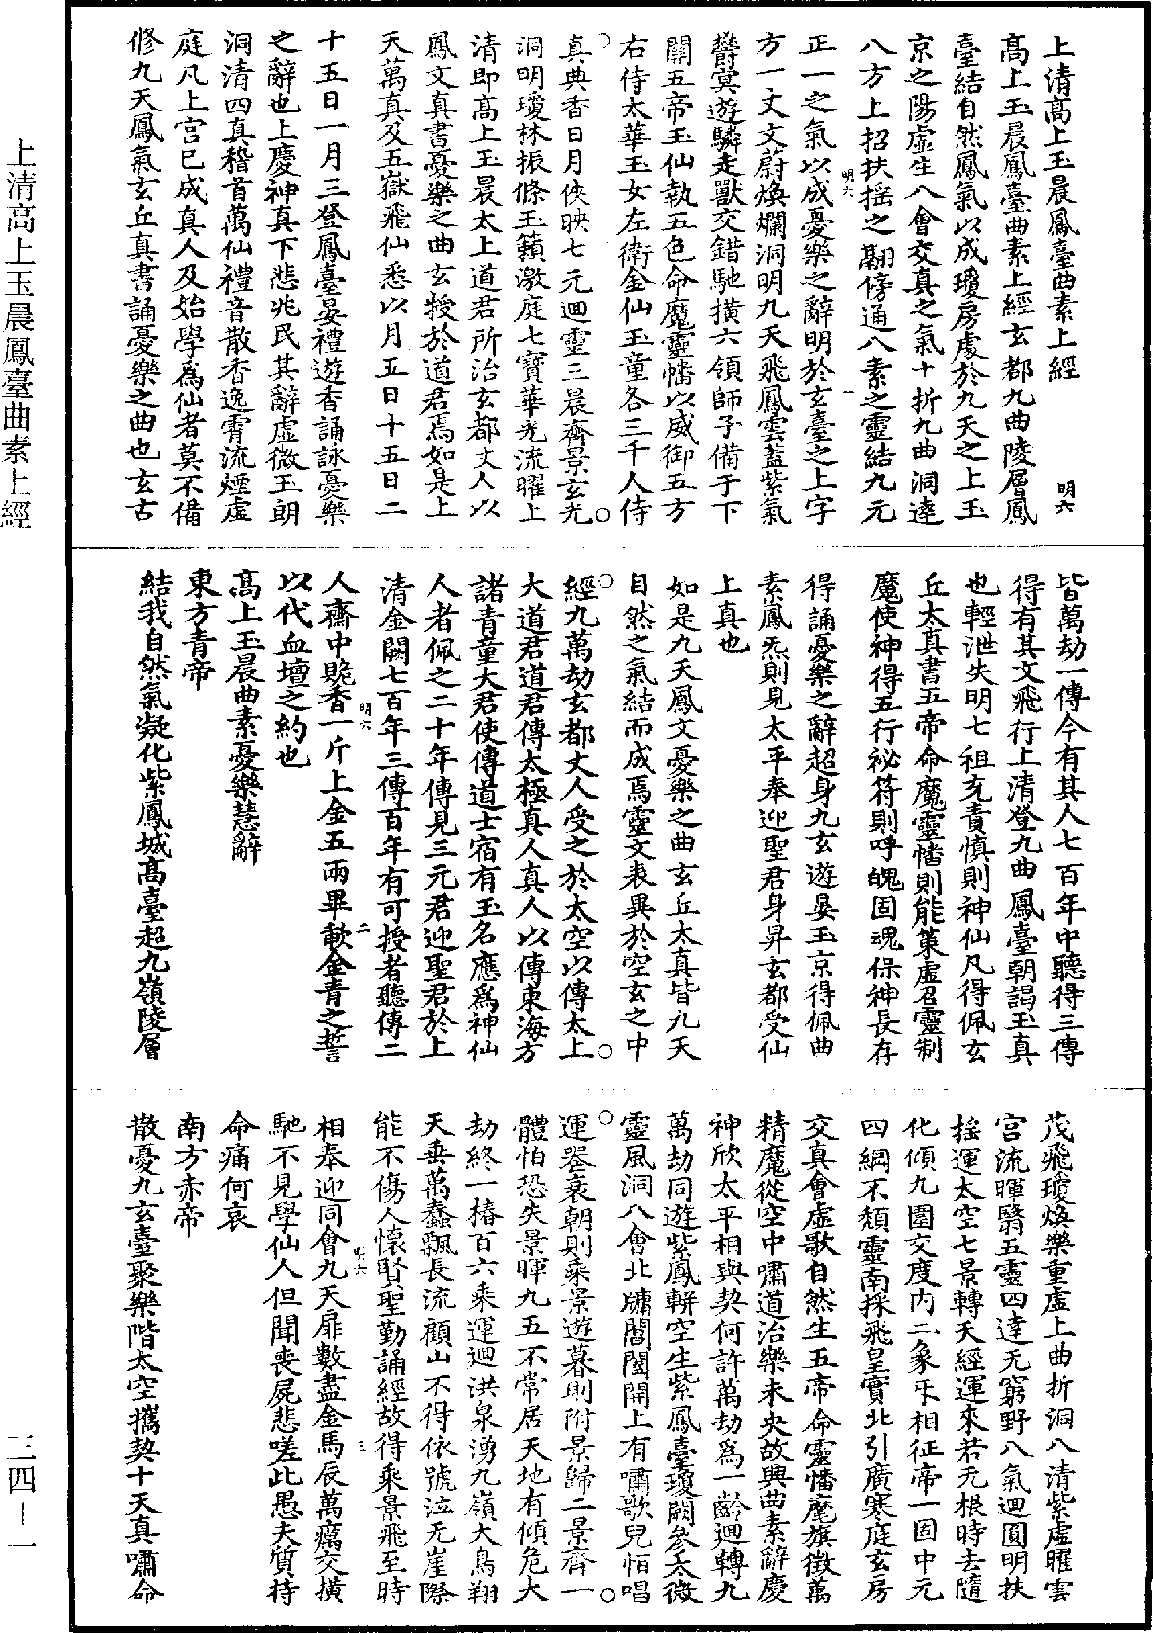 上清高上玉晨鳳臺曲素上經
明六
高上玉晨鳳臺曲素上經玄都九曲陵層鳳
臺結自然鳳氣以成瓊房處於九天之上玉
京之陽虛生八會交真之氣十折九曲洞達
八方上招扶搖之翮傍通八素之靈結九元
正一之氣以成憂樂之辭明於玄臺之上字
方一丈文蔚煥爛洞明九天飛鳳雲蓋紫氣
欝冥遊驎走獸交錯馳擴六領師子備于下
關五帝玉仙執五色命魔靈幡以威御五方
右侍太華玉女左衛金仙玉童各三千人侍
真典香日月俠映七元迴靈三晨齊景玄光
洞明瓊林振條玉籟激庭七寶華光流曜上
清即高上玉晨太上道君所治玄都丈人以
鳳文真書憂樂之曲玄授於道君焉如是上
天萬真及五嶽飛仙悉以月五日十五日二
十五日一月三登鳳臺晏禮遊香誦詠憂樂
之辭也上慶神真下悲兆民其辭虛微玉朗
洞清四真稽首萬仙禮音散香逸霄流煙虛
庭凡上宮已成真人及始學為仙者莫不備
修九天鳳氣玄丘真書誦憂樂之曲也玄古
皆萬劫一傳今有其人七百年中聽得三傳
得有其文飛行上清登九曲鳳臺朝謁玉真
也輕泄失明七祖充責慎則神仙凡得佩玄
丘太真書五帝命魔靈幡則能策虛召靈制
魔使神得五行祕符則呼魄固魂保神長存
得誦憂樂之辭超身九玄遊晏玉京得佩曲
素鳳炁則見太平奉迎聖君身昇玄都受仙
上真也
如是九天鳳文憂樂之曲玄丘太真皆九天
自然之氣結而成焉靈文表異於空玄之中
經九萬劫玄都丈人受之於太空以傳太上
大道君道君傳太極真人真人以傳東海方
諸青童大君使傳道士宿有玉名應為神仙
人者佩之二十年傳見三元君迎聖君於上
清金闕七百年三傳百年有可授者聽傳二
人齋中貺香一斤上金五兩畢歃金青之誓
以代血壇之約也
高上玉晨曲素憂樂慧辭
東方青帝
結我自然氣凝化紫鳳城高臺超九嶺陵層
茂飛瓊煥樂重虛上曲折洞八清紫虛曜雲
宮流暉翳五靈四達无窮野八氣迴圓明扶
搖運太空七景轉天經運來若无根時去隨
化傾九圍交度內二象乑相征帝一固中元
四綱不頹靈南採飛皇實北引廣寒庭玄房
交真會虛歌自然生五帝命靈幡麾旗徵萬
精魔從空中嘯道冶樂未央故興曲素辭慶
神欣太平相與契何許萬劫為一齡迴轉九
萬劫同遊紫鳳輧空生紫鳳臺瓊闕參太微
靈風洞八會北牖闔闔開上有嘯歌兒怕唱
運啓衰朝則乘景遊暮則附景歸二景齊一
體怕恐失景暉九五不常居天地有傾危大
劫終一椿百六乘運迴洪泉湧九嶺大鳥翔
天垂萬蠢飄長流顧山不得依號泣无崖際
能不傷人懷賢聖勤誦經故得乘景飛至時
相奉迎同會九天扉數盡金馬辰萬癘交橫
馳不見學仙人但聞喪屍悲嗟此愚夫質持
命痛何哀
南方赤帝
散憂九玄臺聚樂階太空攜契十天真嘯命
上清高上玉晨鳳臺曲素上經
三四—一